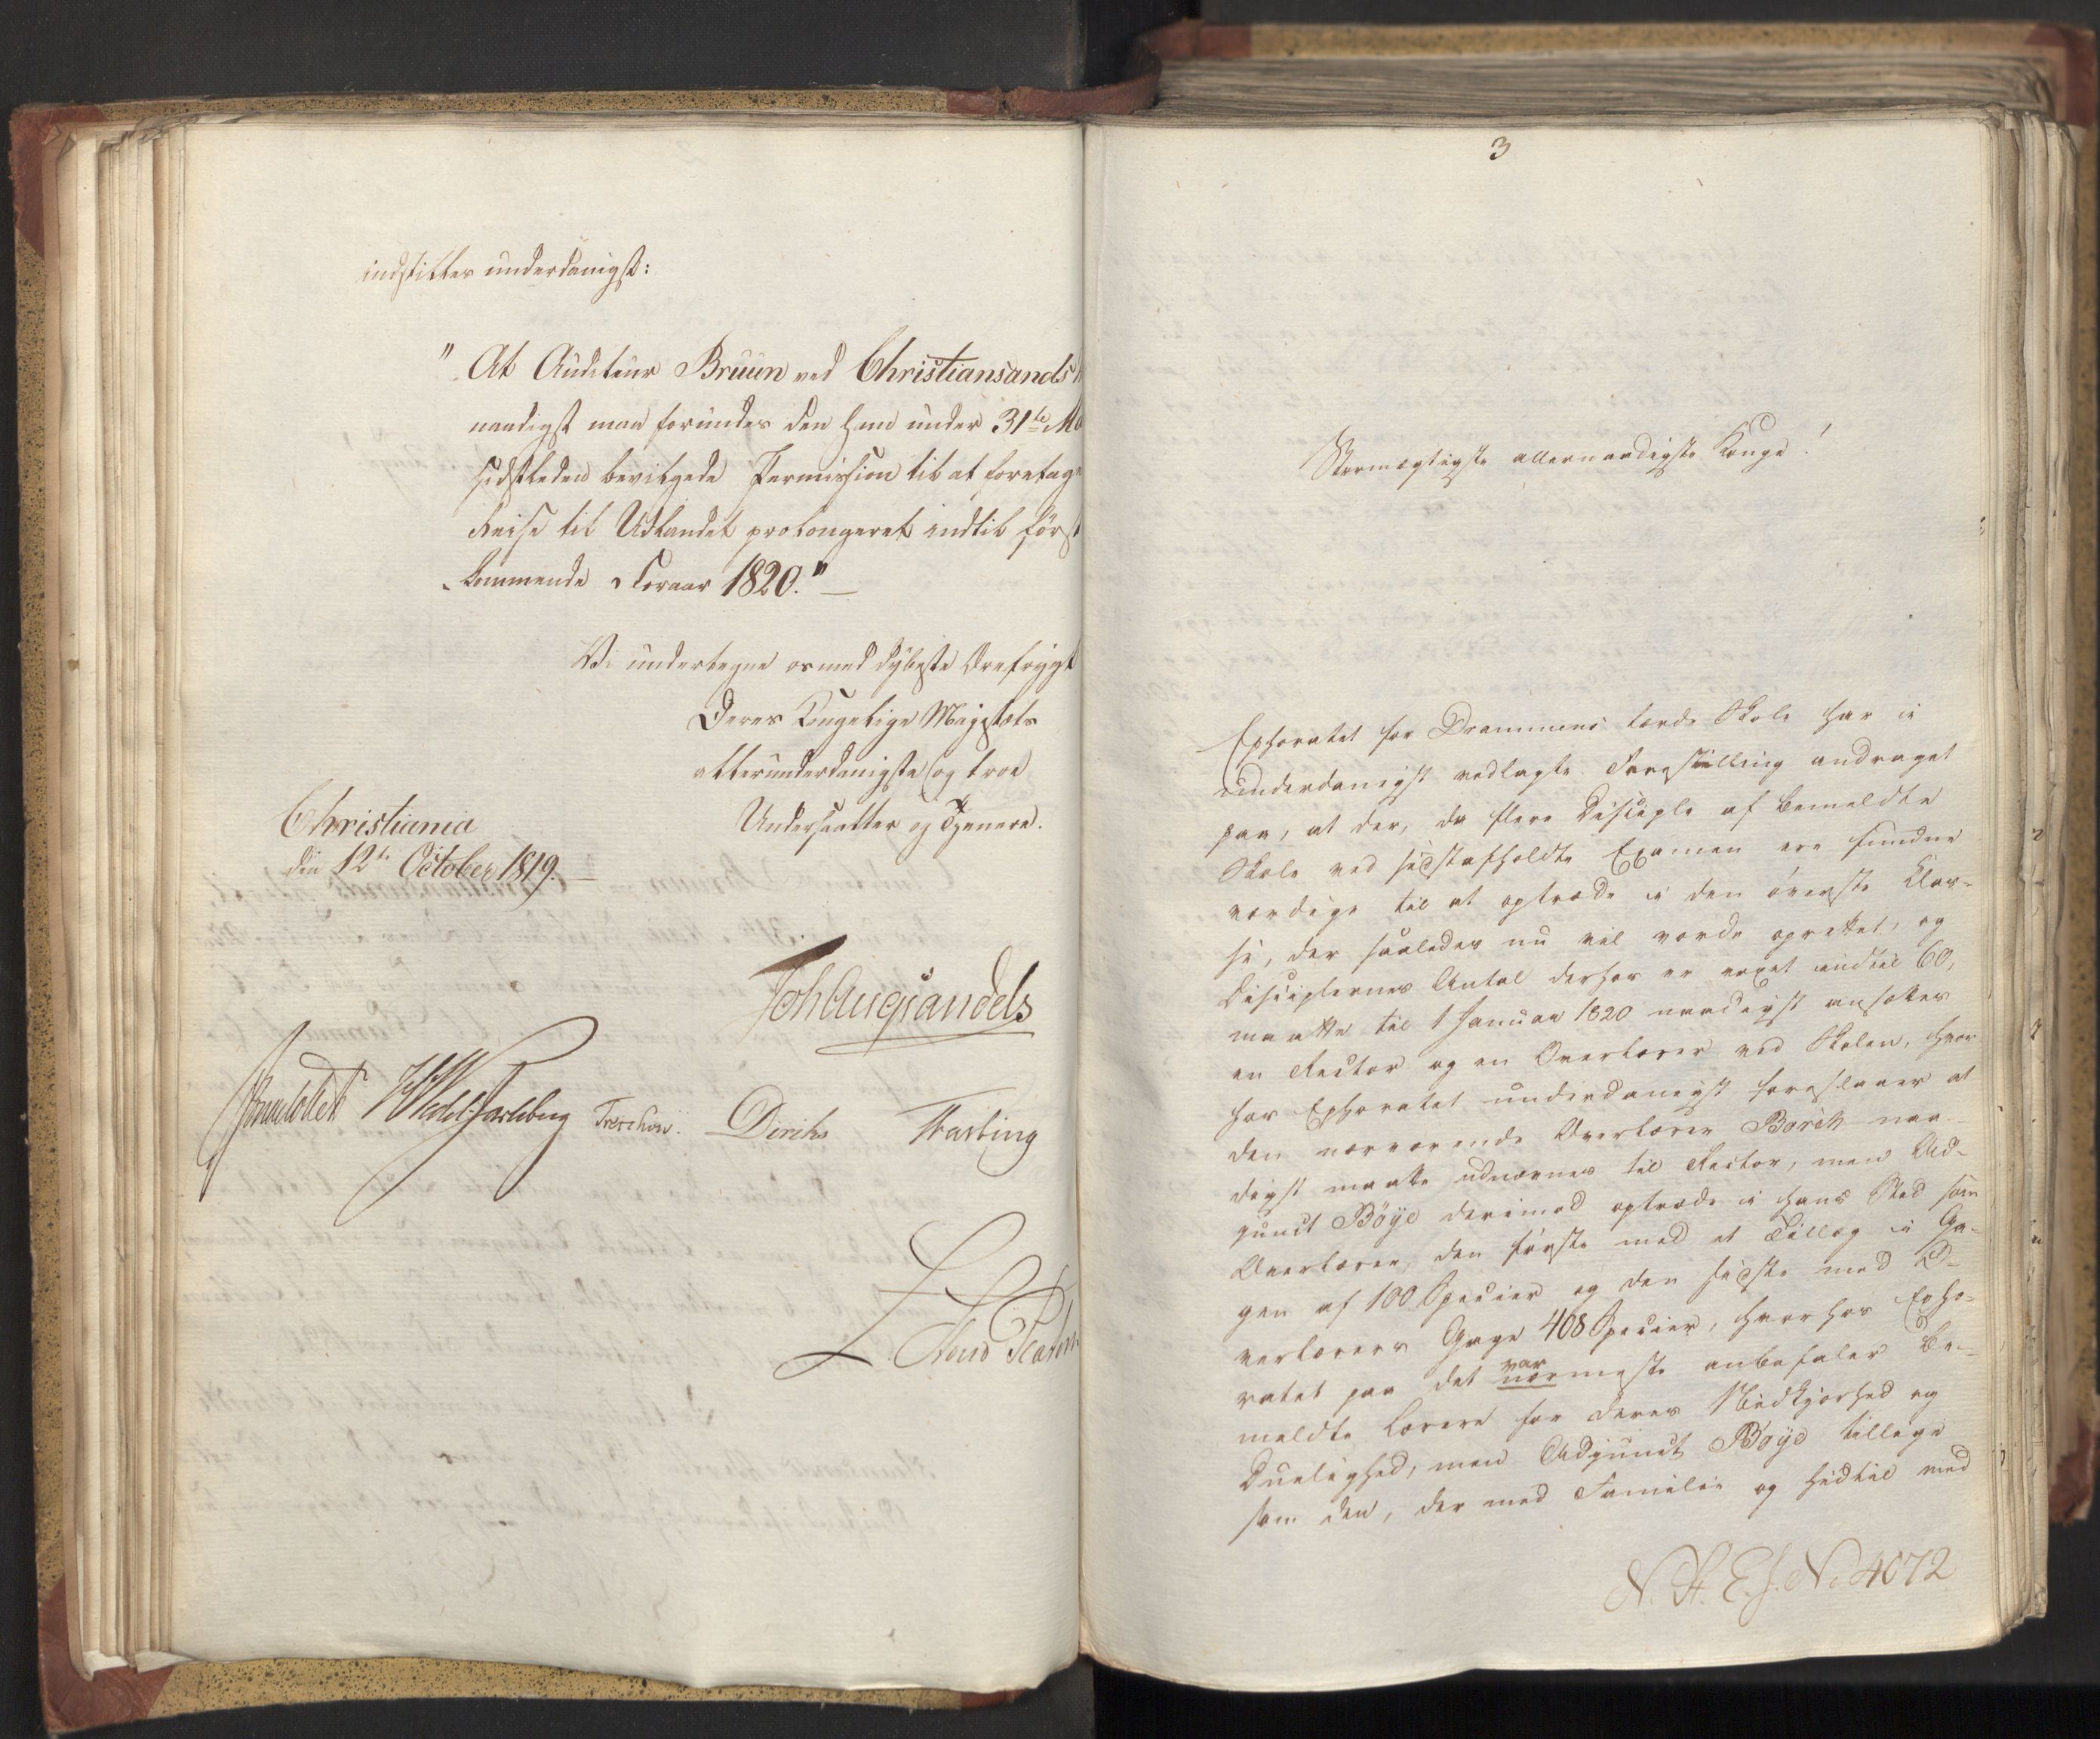 indstilles underdanigst:
"At Auditeur Bruun ved Christiansands
naadigst maa forundes den ham under 31te Ma
sidstleden bevilgede Permission til at foretage
Reise til Udlandet prolongeret indtil først
kommende Foraar 1820."
Vi undertegne os med dybeste Ærefrygt
Deres Kongelige Majestæts
allerunderdanigste og troe
Undersaatter og Tjenere.
Christiania
den 12te October 1819.
Joh Aug Sandels
Sommerhielm HWedel Jarlsberg Treschow. Diriks Fasting
3
Stormægtigste allernaadigste Konge!
Ephoratet for Drammens lærde Skole har i
underdanigst vedlagte Forestilling andraget
paa, at der, da flere Disciple af bemeldte
Skole ved sidstafholdte Examen ere fundne
værdige til at optræde i den øverste Clas-
se, der saaledes nu vil vorde oprettet, og
Disciplernes Antal derhos er voxet indtil 60,
maatte til 1 Januar 1820 naadigst ansættes
en Rector og en Overlærer ved Skolen, hvor
hos Ephoratet underdanigst foreslaaer at
den nærværende Overlærer Borch naa-
digst maatte udnævnes til Rector, men Ad-
junct Böye derimod optræde i hans Sted som
Overlærer, den første med et Tillæg i Ga-
gen af 100 Specier og den sidste med O-
verlærers Gage 408 Specier, hvorhos Epho-
ratet paa det
var
nærmeste anbefaler be-
meldte Lærere for deres Nidkjærhed og
Duelighed, men Adjunct Böye tillige
som den, der med Familie og hidtil med
N. A. E. J. No 4072